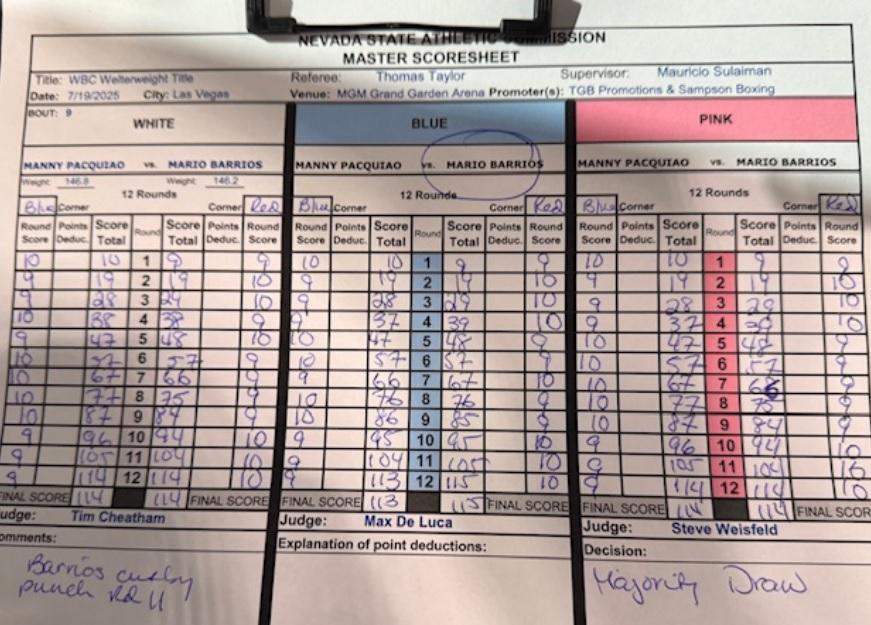 NEVADA STATE ATHLETIC COMMISSION
MASTER SCORESHEET
Title: WBC Welterweight Title Referee: Thomas Taylor Supervisor: Mauricio Sulaiman
Date: 7/19/2025 City: Las Vegas Venue: MGM Grand Garden Arena Promoter(s): TGB Promotions & Sampson Boxing
BOUT: 9
WHITE BLUE PINK
MANNY PACQUIAO vs. MARIO BARRIOS MANNY PACQUIAO vs. MARIO BARRIOS MANNY PACQUIAO vs. MARIO BARRIOS
Weight: 146.8 Weight: 146.2
12 Rounds 12 Rounds 12 Rounds
Blue Corner Corner Red Blue Corner Corner Red Blue Corner Corner Red
Round Score Points Deduc. Score Total Round Score Total Points Deduc. Round Score Round Score Points Deduc. Score Total Round Score Total Points Deduc. Round Score Round Score Points Deduc. Score Total Round Score Total Points Deduc. Round Score
10 10 1 9 9 10 10 1 9 9 10 10 1 9 9
9 19 2 19 10 9 19 2 19 10 9 19 2 19 10
9 28 3 29 10 9 28 3 29 10 9 28 3 29 10
10 38 4 38 9 9 37 4 39 10 9 37 4 39 10
9 47 5 48 10 10 47 5 48 9 10 47 5 48 9
10 57 6 57 9 10 57 6 57 9 10 57 6 57 9
10 67 7 66 9 9 66 7 67 10 10 67 7 66 9
10 77 8 75 9 10 76 8 76 9 10 77 8 75 9
10 87 9 84 9 10 86 9 85 9 10 87 9 84 9
9 96 10 94 10 9 95 10 95 10 9 96 10 94 10
9 105 11 104 10 9 104 11 105 10 9 105 11 104 10
9 114 12 114 10 9 113 12 115 10 9 114 12 114 10
FINAL SCORE 114 114 FINAL SCORE FINAL SCORE 113 115 FINAL SCORE FINAL SCORE 114 114 FINAL SCOR
Judge: Tim Cheatham Judge: Max De Luca Judge: Steve Weisfeld
omments: Explanation of point deductions: Decision:
Barrios cut by
punch Rd 11
Majority Draw